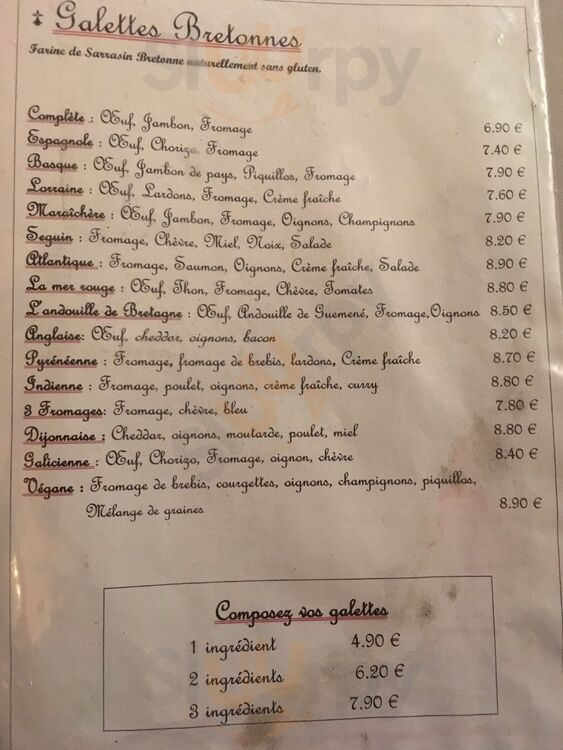 Galettes Bretonnes
Farine de Sarrasin Bretonne naturellement sans gluten.
Complète : Œuf, Jambon, Fromage 6.90 €
Espagnole : Œuf, Chorizo, Fromage 7.40 €
Basque : Œuf, Jambon de pays, Piquillos, Fromage 7.90 €
Lorraine : Œuf, Lardons, Fromage, Crème fraîche 7.60 €
Maraîchère : Œuf, Jambon, Fromage, Oignons, Champignons 7.90 €
Seguin : Fromage, Chèvre, Miel, Noix, Salade 8.20 €
Atlantique : Fromage, Saumon, Oignons, Crème fraîche, Salade 8.90 €
La mer rouge : Œuf, Thon, Fromage, Chèvre, Tomates 8.80 €
L'andouille de Bretagne : Œuf, Andouille de Guemené, Fromage,Oignons 8.50 €
Anglaise: Œuf, cheddar, oignons, bacon 8.20 €
Pyrénéenne : Fromage, fromage de brebis, lardons, Crème fraîche 8.70 €
Indienne : Fromage, poulet, oignons, crème fraîche, curry 8.80 €
3 Fromages: Fromage, chèvre, bleu 7.80 €
Dijonnaise : Cheddar, oignons, moutarde, poulet, miel 8.80 €
Galicienne : Œuf, Chorizo, Fromage, oignon, chèvre 8.40 €
Végane : Fromage de brebis, courgettes, oignons, champignons, piquillos,
Mélange de graines 8.90 €
Composez vos galettes
1 ingrédient 4.90 €
2 ingrédients 6.20 €
3 ingrédients 7.90 €